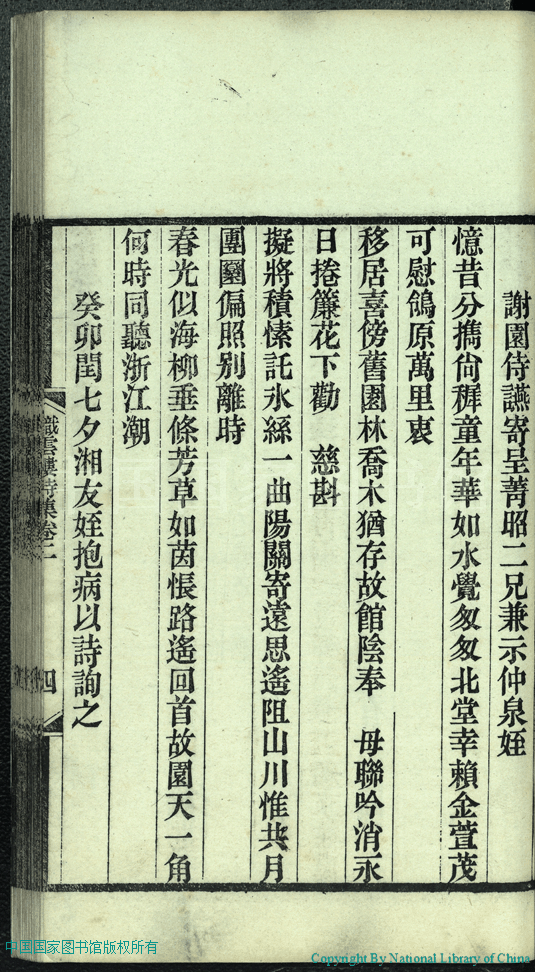 謝園侍讌寄呈菁昭二兄兼示仲泉姪
憶昔分攜尙穉童年華如水覺匆匆北堂幸賴金萱茂
可慰鴒原萬里衷
移居喜傍舊園林喬木猶存故館陰奉　母聯吟消永
日捲簾花下勸　慈斟
擬將積愫託氷絲一曲陽關寄遠思遙阻山川惟共月
團圞偏照別離時
春光似海柳垂條芳草如茵悵路遙回首故園天一角
何時同聽浙江潮
癸卯閏七夕湘友姪抱病以詩詢之
織雲樓詩集卷二
四
中国国家图书馆版权所有
Copyright By National Library of China